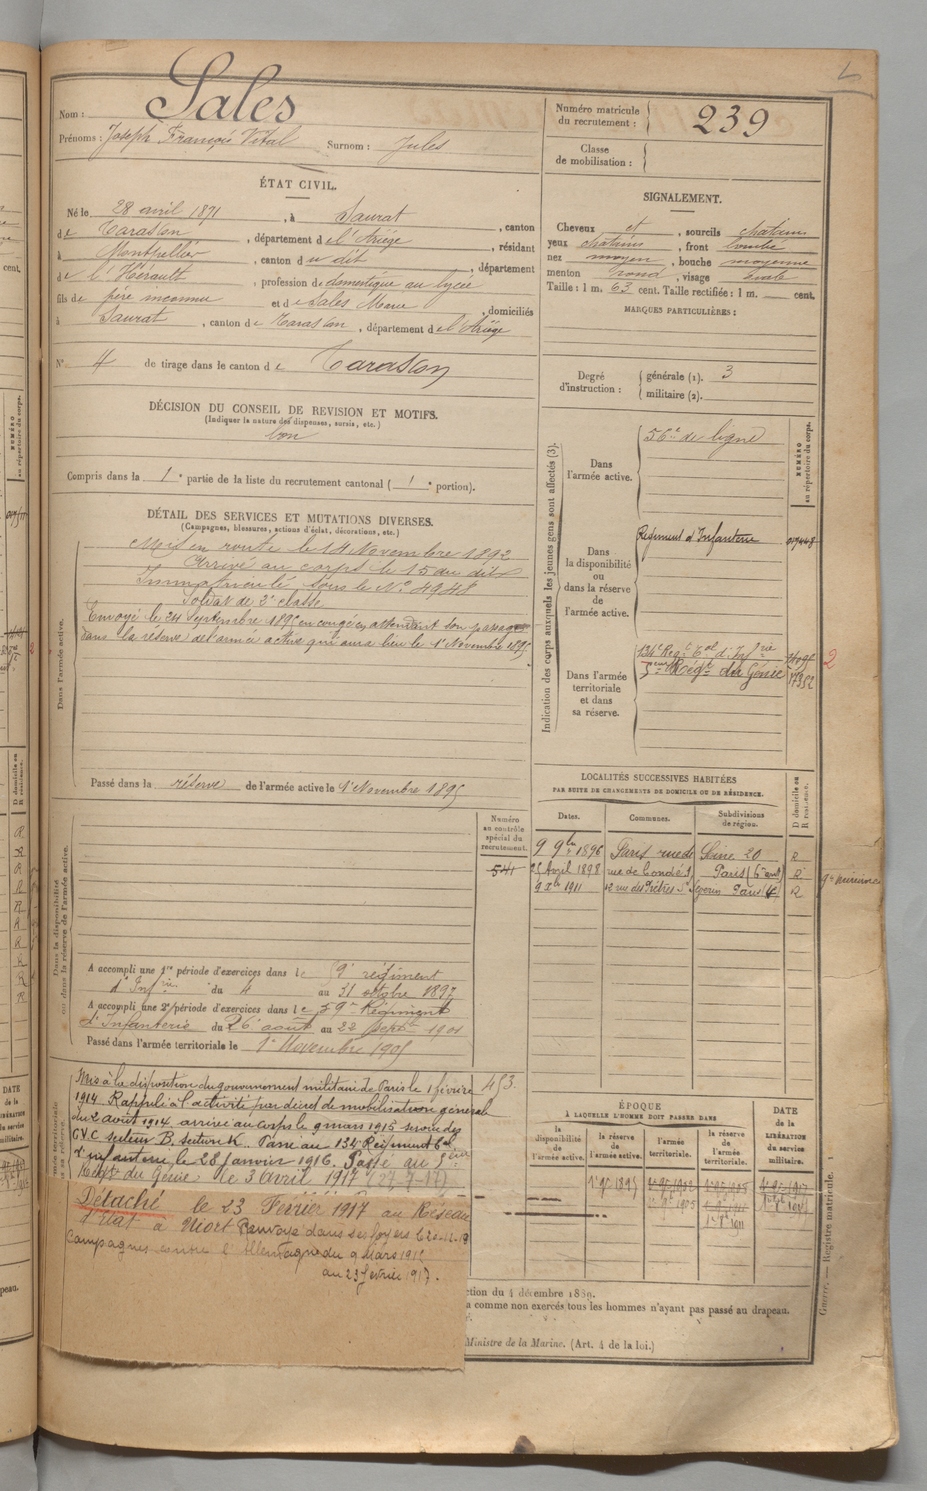 Nom : Sales
Prénoms : Joseph François Vital Surnom : Jules
Numéro matricule du recrutement : 239
Classe de mobilisation :
ÉTAT CIVIL.
Né le 28 avril 1871, à Saurat, canton
de Tarascon, département de l'Ariège, résidant
à Montpellier, canton du dit, département
de l'Hérault, profession de domestique au lycée
fils de père inconnu et de Sales Marie, domiciliés
à Saurat, canton de Tarascon, département de l'Ariège
N° 4 de tirage dans le canton de Tarascon
SIGNALEMENT.
Cheveux et, sourcils châtains
yeux châtains, front bombé
nez moyen, bouche moyenne
menton rond, visage ovale
Taille : 1 m. 63 cent. Taille rectifiée : 1 m. cent.
MARQUES PARTICULIÈRES :
Degré d'instruction : générale (1). 3
militaire (2).
DÉCISION DU CONSEIL DE REVISION ET MOTIFS.
(Indiquer la nature des dispenses, sursis, etc.)
bon
Compris dans la 1e partie de la liste du recrutement cantonal (1e portion).
DÉTAIL DES SERVICES ET MUTATIONS DIVERSES.
(Campagnes, blessures, actions d'éclat, décorations, etc.)
Dans l'armée active.
Mis en route le 14 Novembre 1892
Arrivé au corps le 15 au dit
Immatriculé sous le N° 4948
Soldat de 2e classe
Envoyé le 24 septembre 1895 en congé en attendant son passage
dans la réserve de l'armée active qui aura lieu le 1er Novembre 1895
Passé dans la réserve de l'armée active le 1er Novembre 1895
Indication des corps auxquels les jeunes gens sont affectés (3).
NUMÉRO au répertoire du corps.
Dans l'armée active.
56e de ligne
Dans la disponibilité ou dans la réserve de l'armée active.
Régiment d'Infanterie
Dans l'armée territoriale et dans sa réserve.
134e Régt Tal d'Infrie
5eme Régt du Génie 17352
2
LOCALITÉS SUCCESSIVES HABITÉES
PAR SUITE DE CHANGEMENTS DE DOMICILE OU DE RÉSIDENCE.
Dates. Communes. Subdivisions de région. D domicile ou R résidence.
9 9bre 1896 Paris rue de Seine 20 R
25 Avril 1898 rue de Condé Paris (6e arrt) R
9 Xbre 1911 12 rue des Prêtres St Séverin Paris R
Dans la disponibilité ou dans la réserve de l'armée active.
Numéro au contrôle spécial du recrutement.
541
A accompli une 1re période d'exercices dans le 59e régiment
d'Infrie du 4 au 31 octobre 1897
A accompli une 2e période d'exercices dans le 59me Régiment
d'Infanterie du 26 août au 22 Septbre 1901
Passé dans l'armée territoriale le 1er Novembre 1905
453.
Mis à la disposition du gouvernement militaire de Paris le 1 février
1914 Rappelé à l'activité par décret de mobilisation générale
du 2 août 1914 arrivé au corps le 9 mars 1915 service des
G.V.C. secteur B. section K. Passé au 134 Régiment Tal
d'infanterie le 28 Janvier 1916. Passé au 5eme
Régt du Génie le 3 Avril 1917
Détaché le 23 Février 1917 au Réseau
d'Etat à Niort Renvoyé dans ses foyers
Campagnes contre l'Allemagne du 9 Mars 1915
au 23 février 1917.
ÉPOQUE
À LAQUELLE L'HOMME DOIT PASSER DANS
la disponibilité de l'armée active. la réserve de l'armée active. l'armée territoriale. la réserve de l'armée territoriale. DATE de la LIBÉRATION du service militaire.
1er 9bre 1895
ction du 4 décembre 1889.
a comme non exercés tous les hommes n'ayant pas passé au drapeau.
Ministre de la Marine. (Art. 4 de la loi.)
Guerre. — Registre matricule. 1